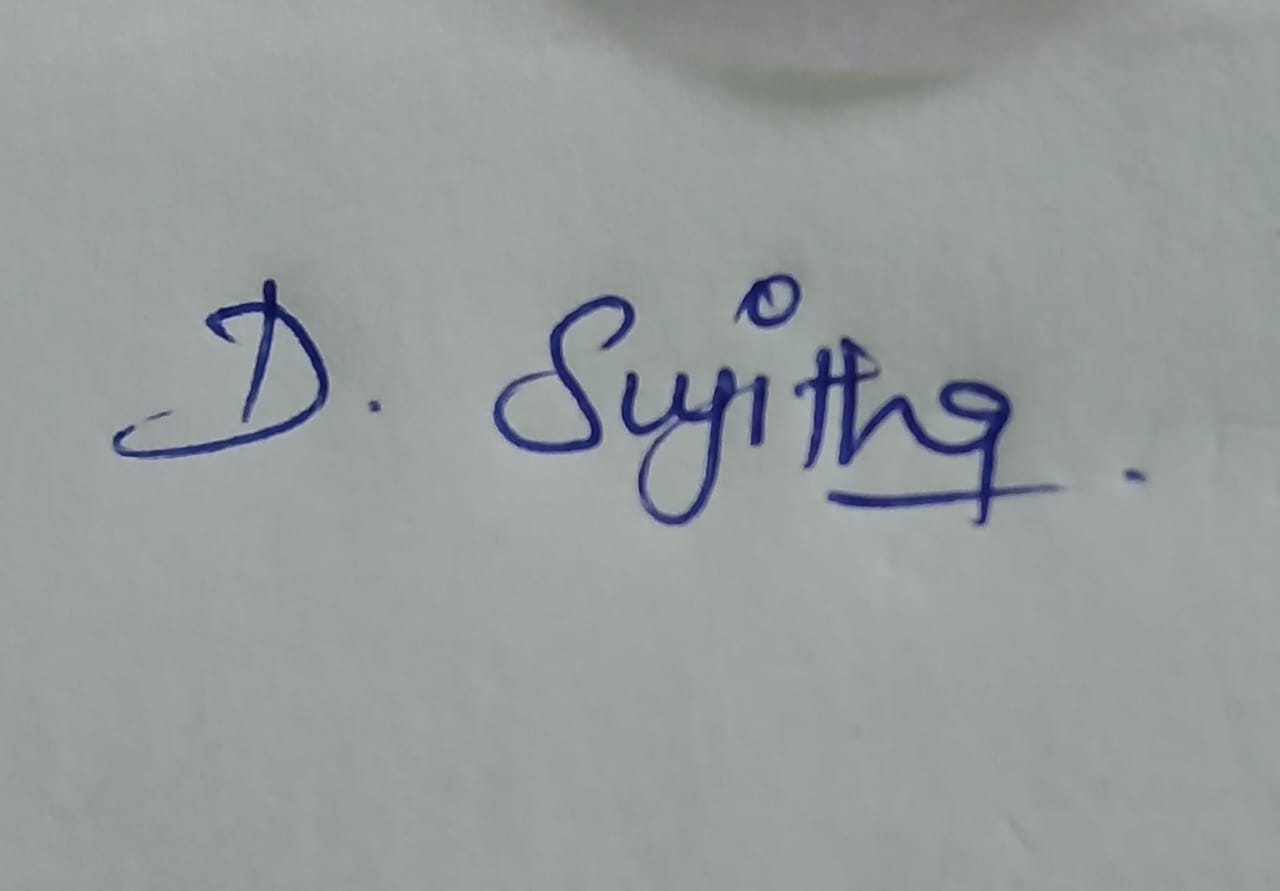 D. Sujitha.